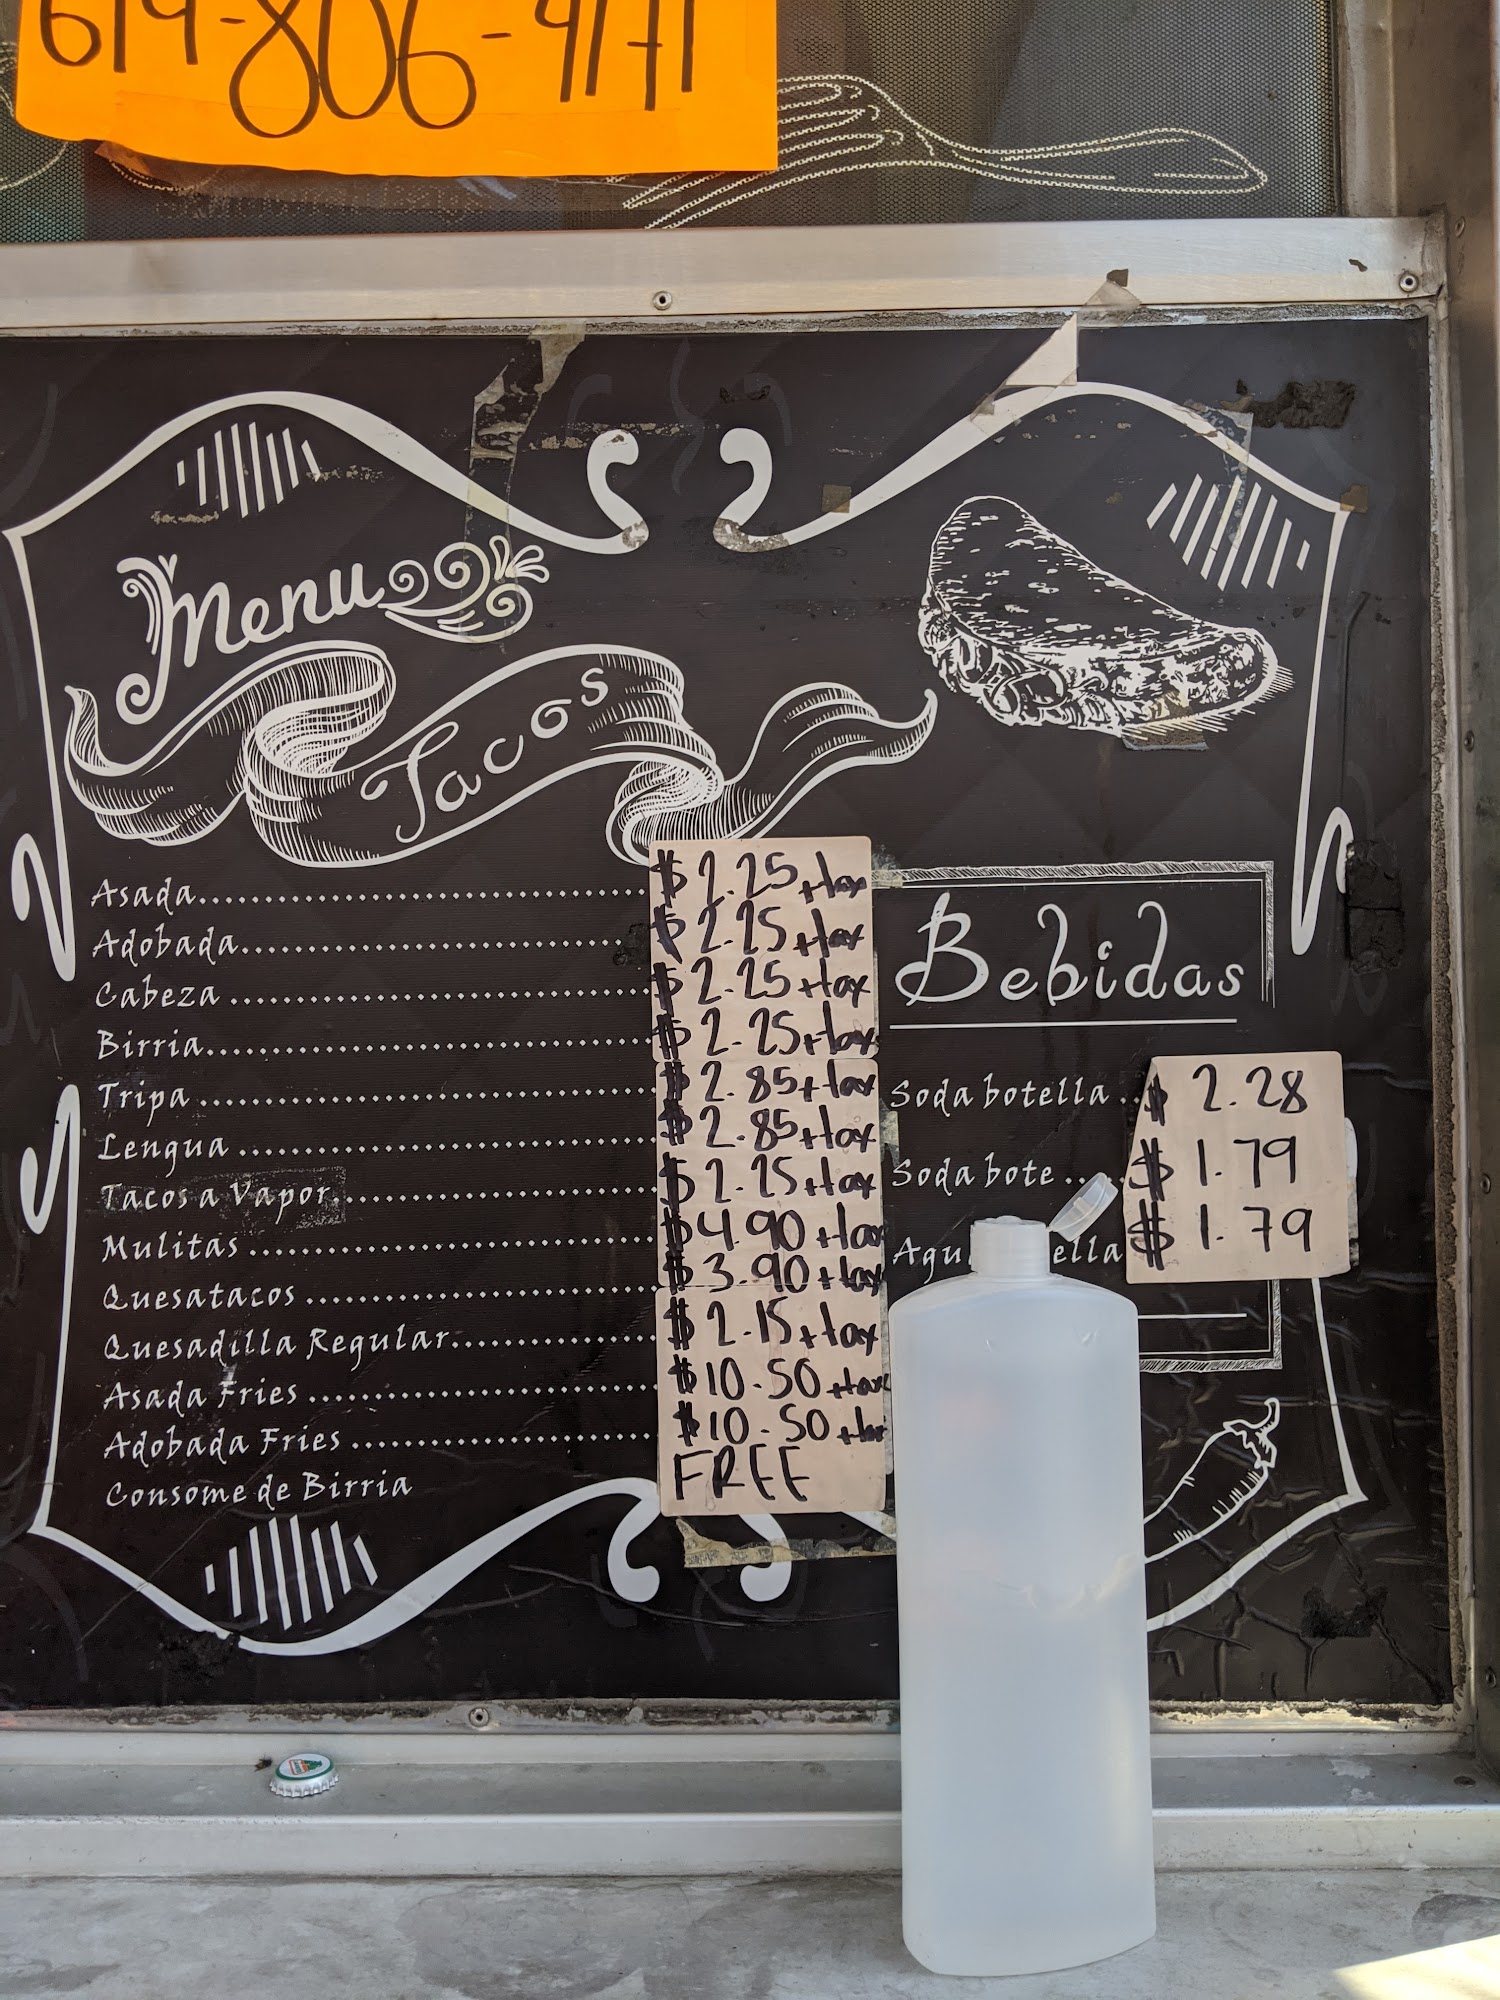 619-806-9171
Menu
Tacos
Asada.......... $2.25 +tax
Adobada.......... $2.25 +tax
Cabeza.......... $2.25 +tax
Birria.......... $2.25 +tax
Tripa.......... $2.85 +tax
Lengua.......... $2.85 +tax
Tacos a Vapor.......... $2.25 +tax
Mulitas.......... $4.90 +tax
Quesatacos.......... $3.90 +tax
Quesadilla Regular.......... $2.15 +tax
Asada Fries.......... $10.50 +tax
Adobada Fries.......... $10.50 +tax
Consome de Birria FREE
Bebidas
Soda botella .. $ 2.28
Soda bote .... $ 1.79
Agu ella $ 1.79